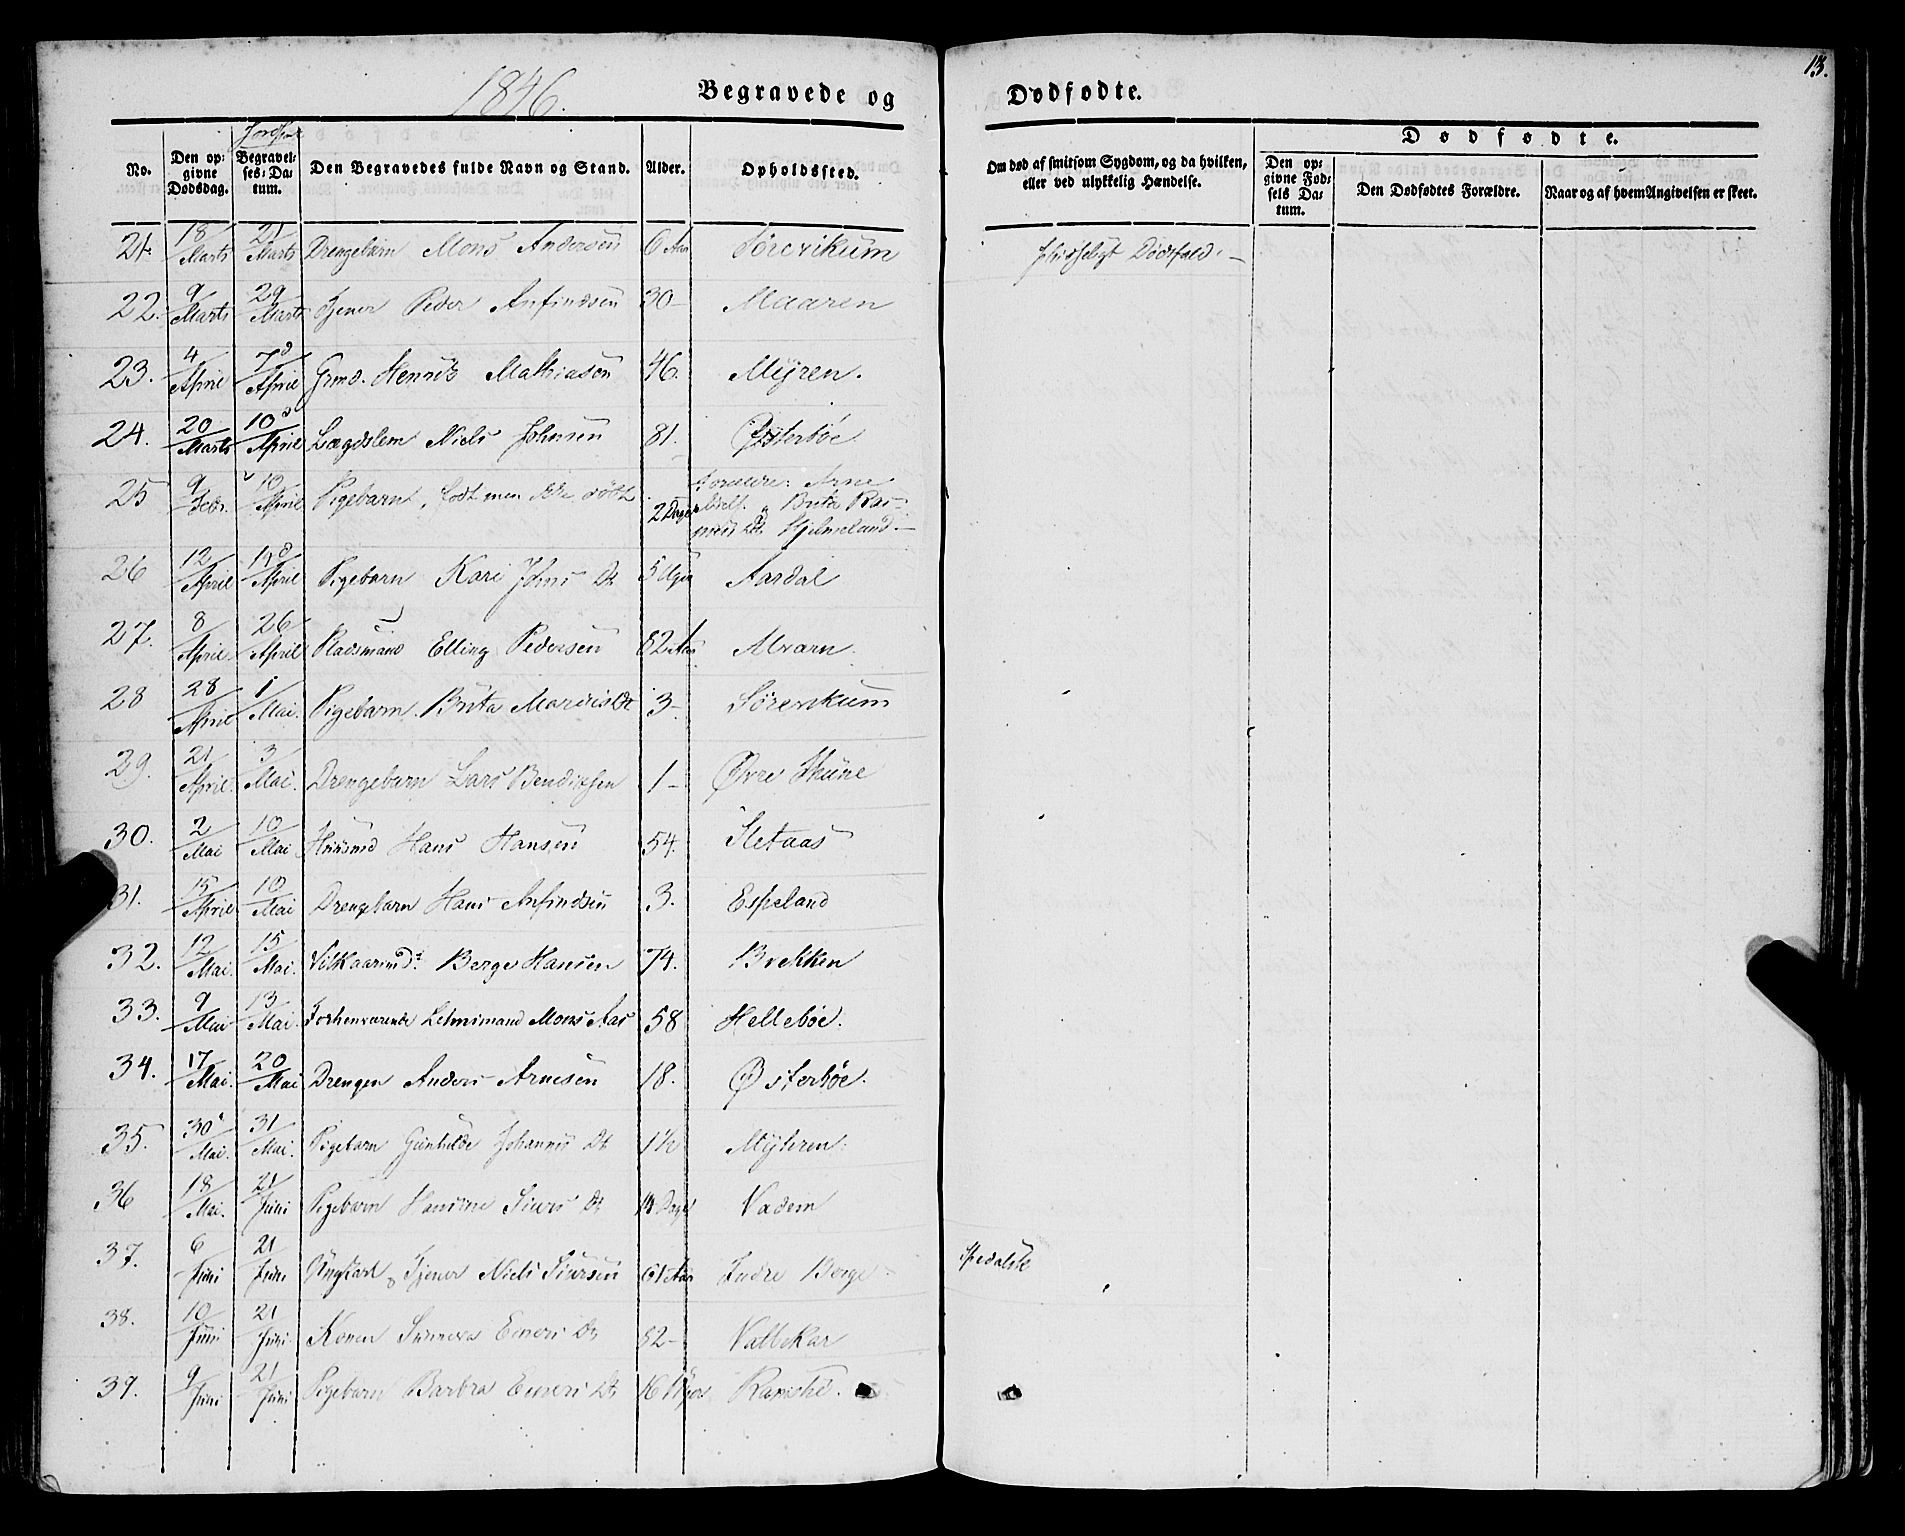 13.
1846.
Begravede og Dødfødte.
No.
Den opgivne Dødsdag.
Begravelses-Datum.
Den Begravedes fulde Navn og Stand.
Alder.
Opholdssted.
Om død af smitsom Sygdom, og da hvilken, eller ved ulykkelig Hændelse.
Dødfødte.
Den opgivne Fødsels Datum.
Den Dødfødtes Forældre.
Naar og af hvem Angivelsen er skeet.
21. 18/Marts 21/Marts Drengebarn Mons Andersen 6 Aar Sörevikum Dødsfald.
22. 9/Marts 29/Marts Tjener Peder Anfindsen 30 Maaren
23. 4/April 7/April Henrik Mathiasen 46. Myren.
24. 20/Marts 10/April Lægdslem Niels Johnsen 81. Østerböe
25 9/Febr. 10/April Pigebarn, födt men ikke döbt 2 Dage Forældre: Arne
Brita Ras-
Hjelmeland.
26 12/April 14/April Pigebarn Kari Johns Dt 5 Uger Aardal
27. 8/April 26/April Pladsmand Elling Pedersen 82 Aar Alvarn
28 28/April 1/Mai. Pigebarn Brita Dt 3 Sörevikum
29. 21/April 3/Mai. Drengebarn Lars Bendiksen 1 Øvre
30. 2/Mai 10/Mai Huusmd Hans Hansen 54. Sletaas
31. 15/April 10/Mai Drengebarn Hans Anfindsen 3. Espeland
32. 12/Mai. 15/Mai. Vilkaarmd. Berge Hansen 74. Brekken
33. 9/Mai 13/Mai. Forhenværende Lehnsmand Mons Aas 58 Helleböe.
34. 17/Mai. 20/Mai Drengen Anders Arnesen 18. Østerböe.
35. 30/Mai. 31/Mai. Pigebarn Gunhilde Johannes Dt 1½ Myhren
36 18/Mai. 21/Juni Pigebarn Hansine Siurs Dt 14 Dage Vadem
37. 6/Juni 21/Juni Ungkarl Tjener Niels Siursen 61 Aar Indre Berge Spedalsk
38. 10/Juni 21/Juni. Konen Sunneva Einers Dt 52 Vallekar
39. 9/Juni 21/Juni Pigebarn Barbra Einers Dt 16 Uger